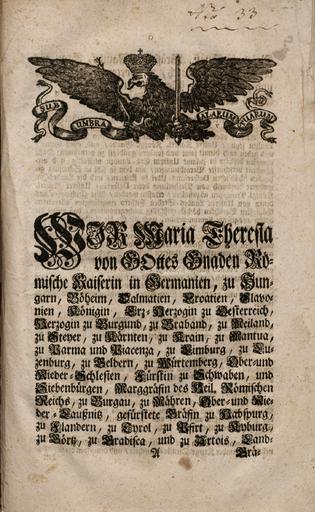 33
SUB
UMBRA
ALARUM
TUARUM
WIR Maria Theresia
von GOttes Gnaden Rö-
mische Kaiserin in Germanien, zu Hun-
garn, Böheim, Dalmatien, Croatien, Slavo-
nien, Königin, Ertz-Herzogin zu Oesterreich,
Herzogin zu Burgund, zu Braband, zu Meiland,
zu Steyer, zu Kärnten, zu Krain, zu Mantua,
zu Parma und Piacenza, zu Limburg, zu Lu-
zenburg, zu Geldern, zu Würtemberg, Ober-und
Nieder-Schlesien, Fürstin zu Schwaben, und
Siebenbürgen, Marggräfin des Heil. Römischen
Reichs, zu Burgau, zu Mähren, Ober-und Nie-
der-Laußnitz, gefürstete Gräfin zu Habspurg,
zu Flandern, zu Tyrol, zu Pfirt, zu Kyburg,
zu Görtz, zu Gradisca, und zu Artois, Land-
A Grä-